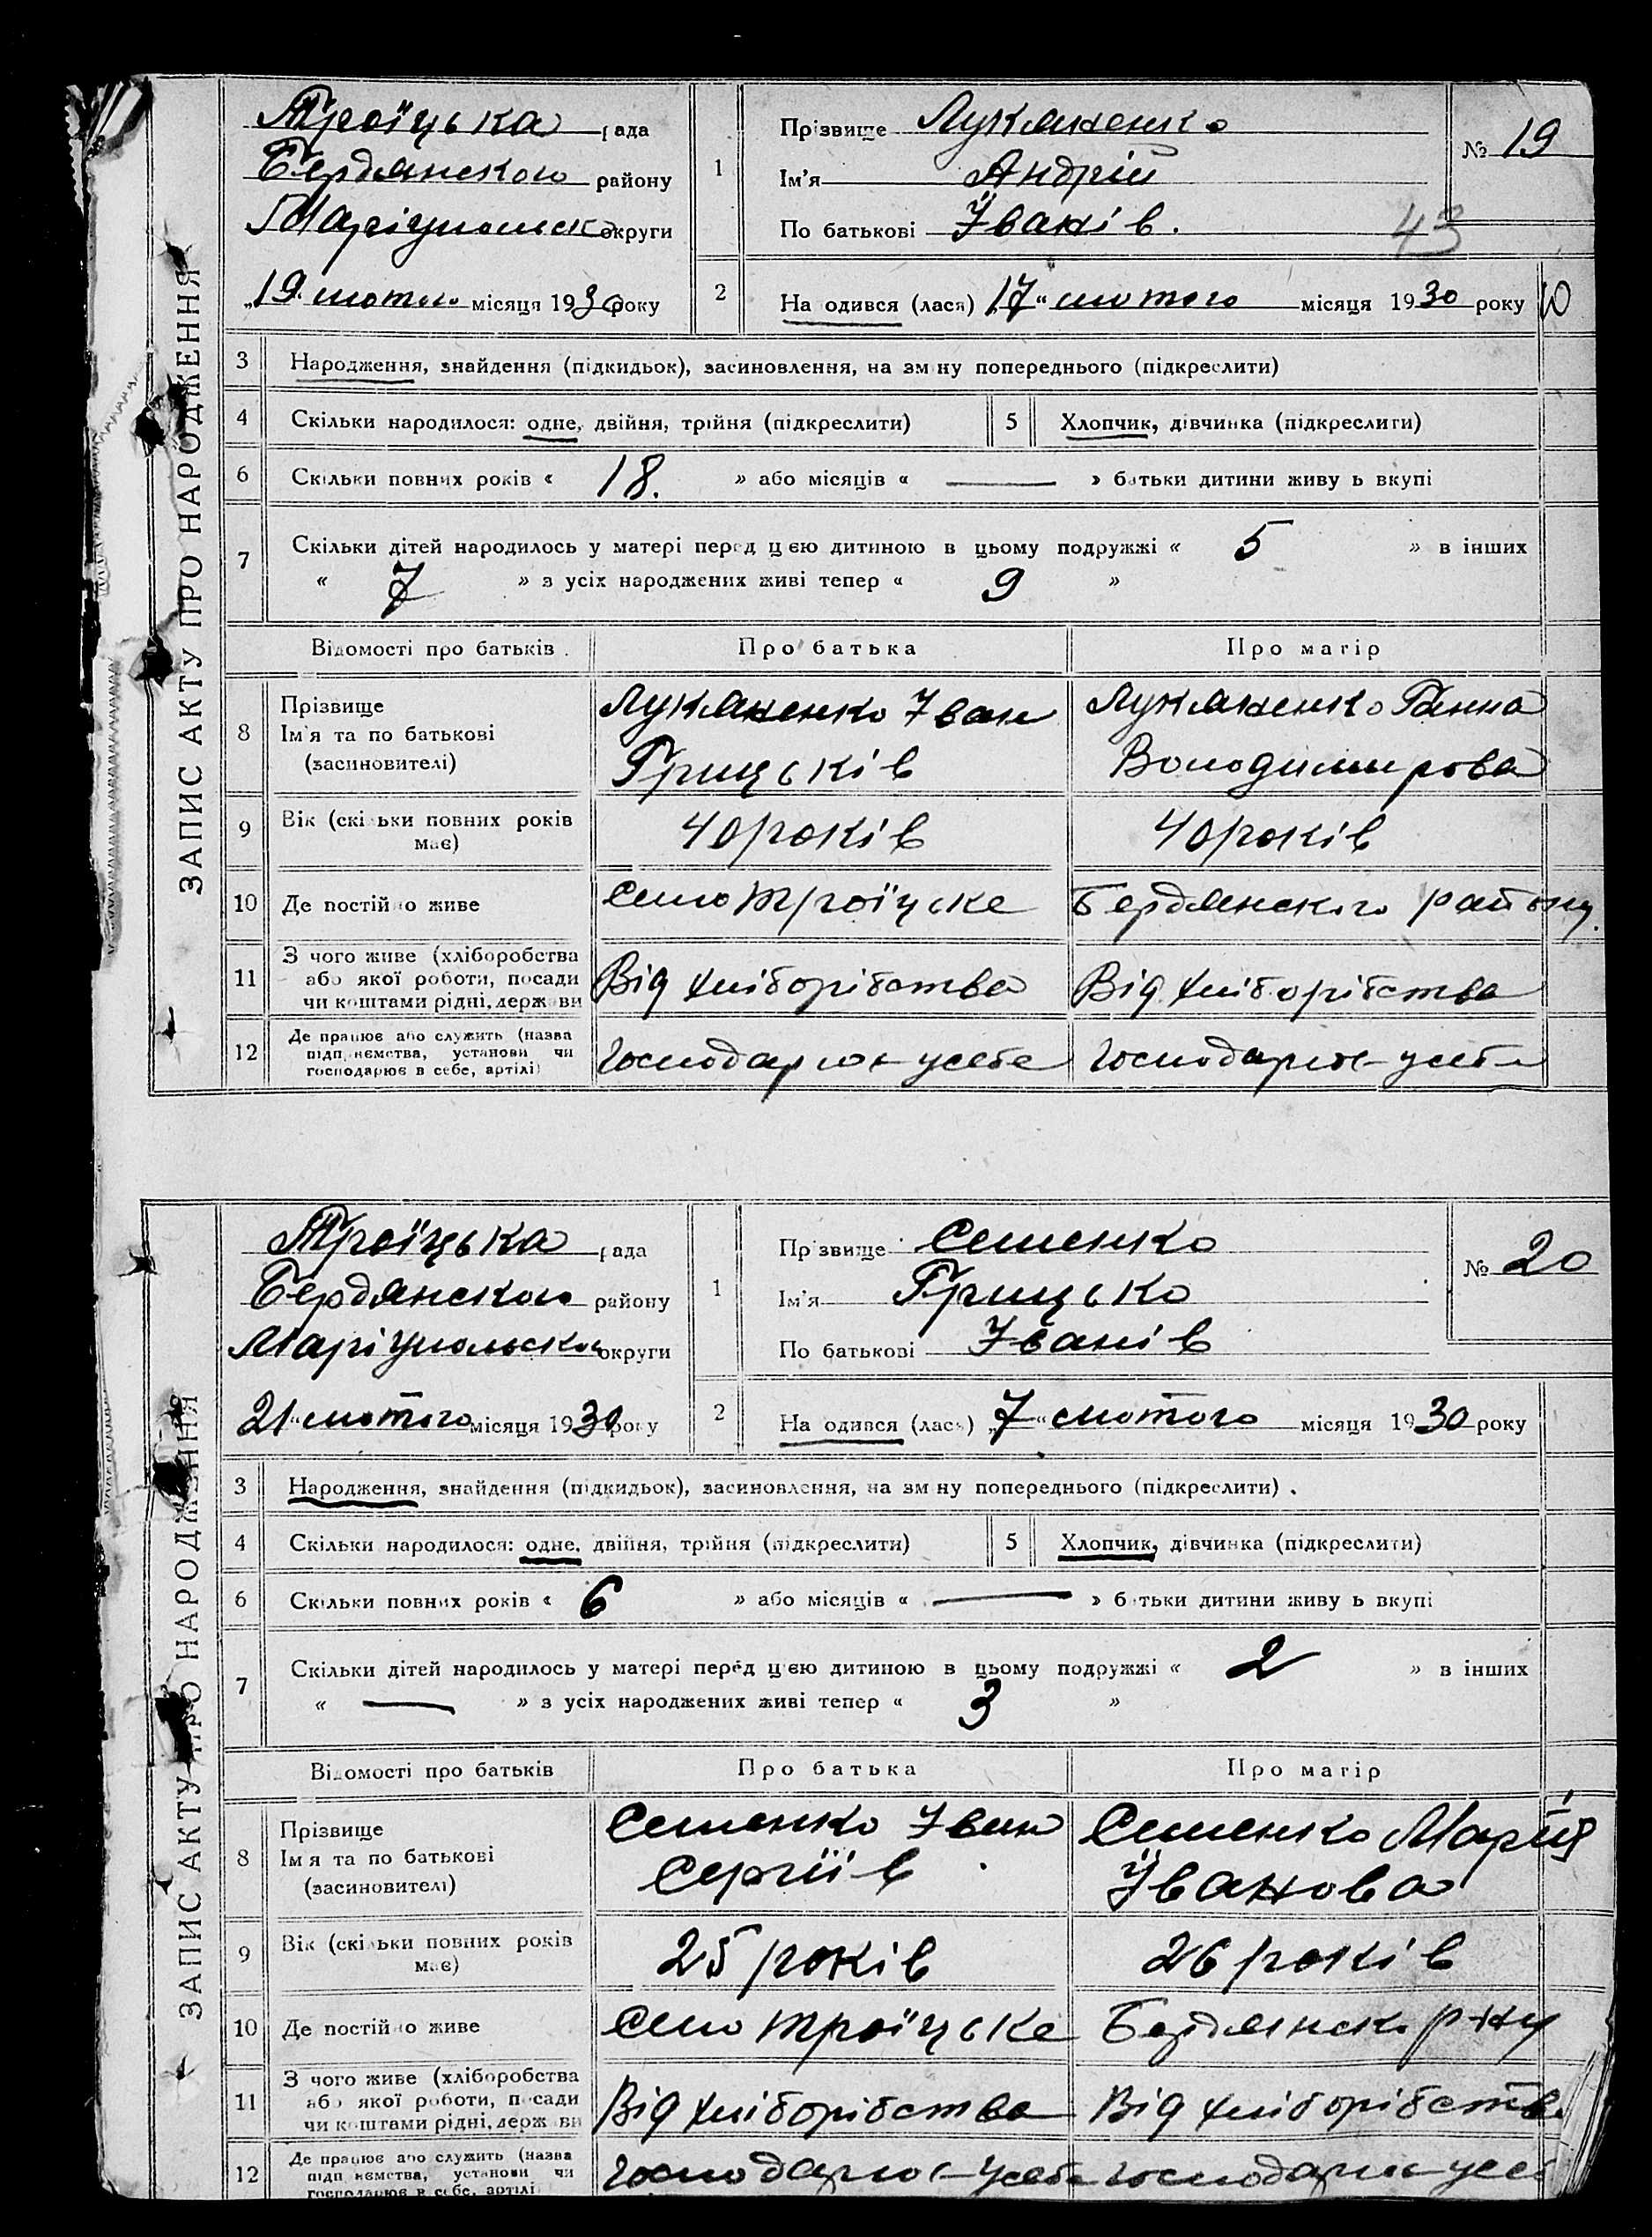 ЗАПИС АКТУ ПРО НАРОДЖЕННЯ
Троїцька рада
Бердянского району
Маріупольск округи
„19 лютого місяця 1930 року
1
Прізвище Лукяненко
Ім'я Андрій
По батькові Іванів.
№ 19
43
2
На одився (лася) „17“ лютого місяця 1930 року
10
3 Народження, знайдення (підкидьок), засиновлення, на зм ну попереднього (підкреслити)
4 Скільки народилося: одне, двійня, трійня (підкреслити) 5 Хлопчик, дівчинка (підкреслити)
6 Скільки повних років « 18. » або місяців « — » батьки дитини живу ь вкупі
7 Скільки дітей народилось у матері перед цією дитиною в цьому подружжі « 5 » в інших
« 7 » з усіх народжених живі тепер « 9 »
Відомості про батьків Про батька Про матір
8 Прізвище Ім'я та по батькові (засиновителі)
Лукяненко Іван Грицьків
Лукяненко Ганна Володимирова
9 Вік (скі ьки повних років має) 40 років 40 років
10 Де постійно живе Село Троїцьке Бердянского району.
11 З чого живе (хліборобства або якої роботи, посади чи коштами рідні, держави
Від хліборібства Від хліборібства
12 Де працює або служить (назва підприємства, установи чи господарює в себе, артілі)
Господарює усебе Господарює усебе
ЗАПИС АКТУ ПРО НАРОДЖЕННЯ
Троїцька рада
Бердянского району
Маріупольского округи
21“ лютого місяця 1930 року
1
Прізвище Семенко
Ім'я Грицько
По батькові Іванів
№ 20
2
На одився (лася) „7“ лютого місяця 1930 року
3 Народження, знайдення (підкидьок), засиновлення, на зм ну попереднього (підкреслити)
4 Скільки народилося: одне, двійня, трійня (підкреслити) 5 Хлопчик, дівчинка (підкреслити)
6 Скільки повних років « 6 » або місяців « — » батьки дитини живу ь вкупі
7 Скільки дітей народилось у матері перед цією дитиною в цьому подружжі « 2 » в інших
« — » з усіх народжених живі тепер « 3 »
Відомості про батьків Про батька Про матір
8 Прізвище Ім'я та по батькові (засиновителі)
Семенко Іван Сергіїв
Семенко Марія Іванова
9 Вік (скільки повних років має) 25 років 26 років
10 Де постійно живе Село Троїцьке Бердянско р-ну
11 З чого живе (хліборобства або якої роботи, посади чи коштами рідні, держави
Від хліборібства Від хліборібств
12 Де працює або служить (назва підприємства, установи чи господарює в себе, артілі
Господарює усебе Господарює усеб